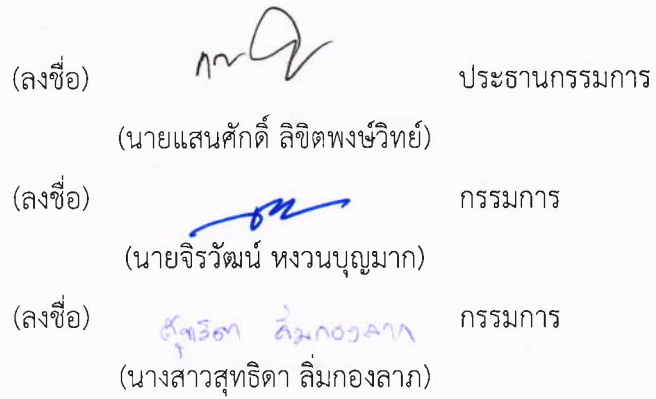 (ลงชื่อ) ประธานกรรมการ
(นายแสนศักดิ์ ลิขิตพงษ์วิทย์)
(ลงชื่อ) กรรมการ
(นายจิรวัฒน์ หงวนบุญมาก)
(ลงชื่อ) สุทธิดา ลิ่มกองลาภ กรรมการ
(นางสาวสุทธิดา ลิ่มกองลาภ)